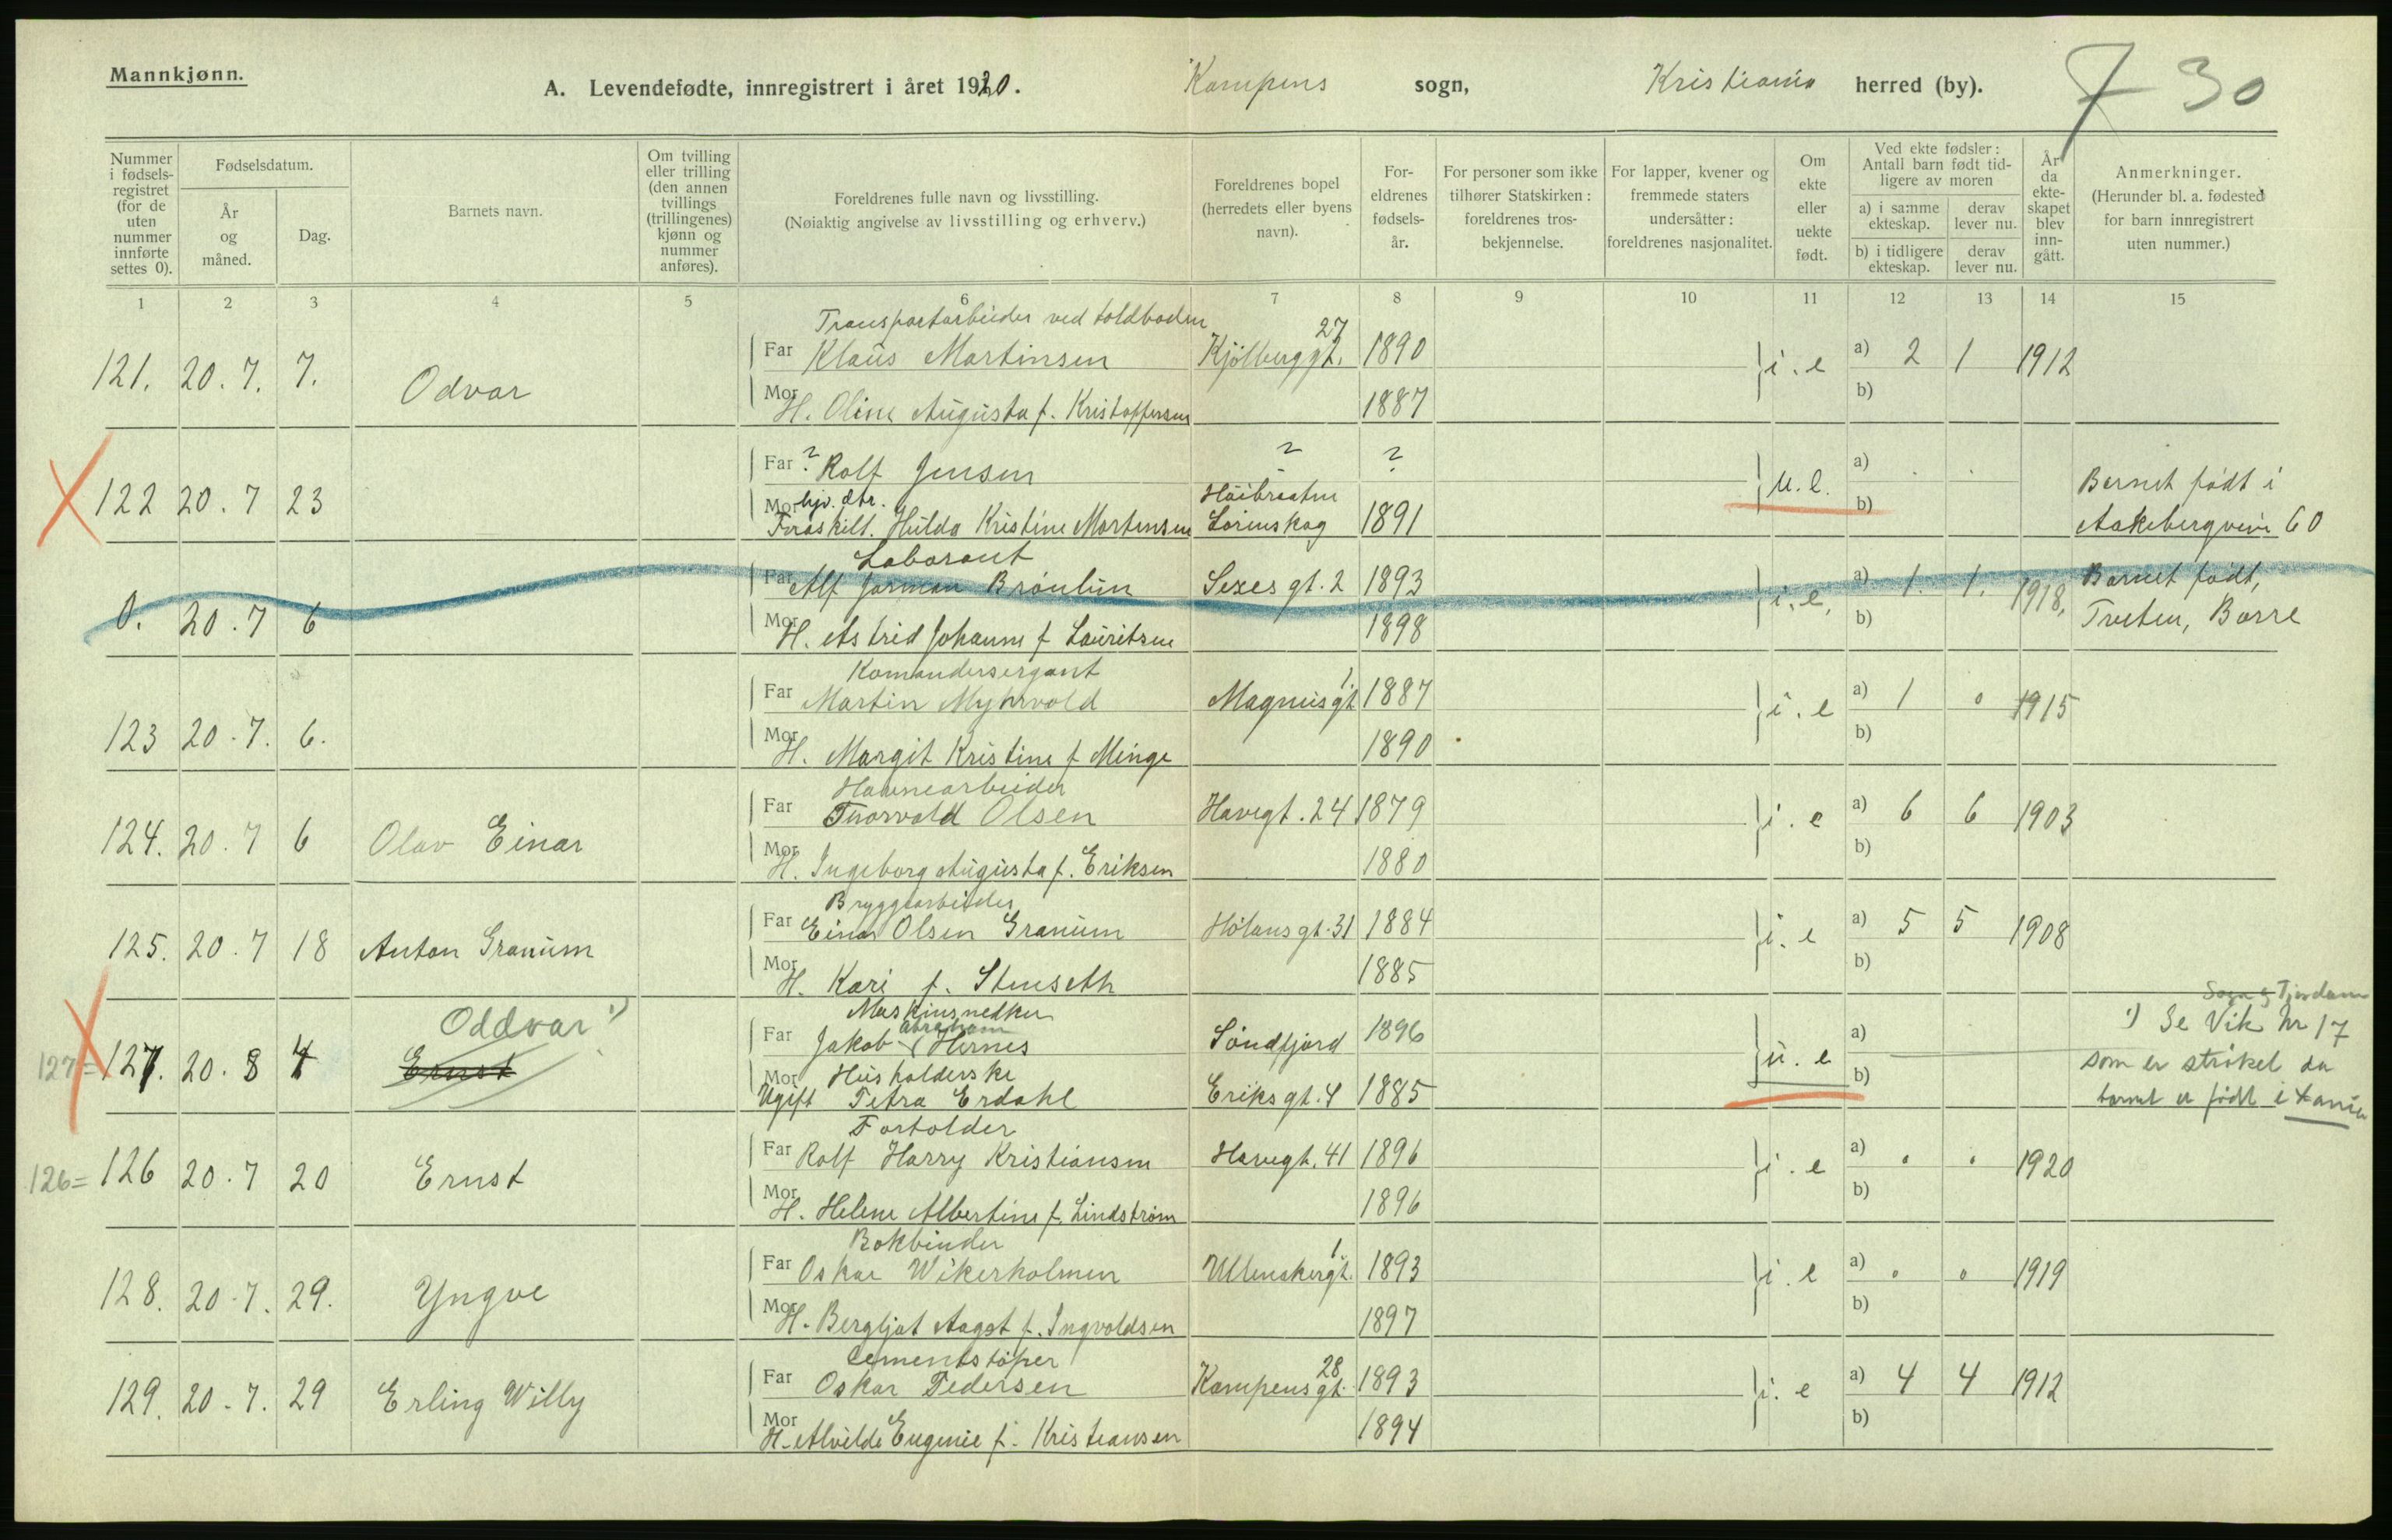 Mannkjønn.
A. Levendefødte, innregistrert i året 1920. Kampens sogn, Kristiania herred (by).
7 30
Nummer i fødselsregistret (for de uten nummer innførte settes 0).
Fødselsdatum.
År og måned.
Dag.
Barnets navn.
Om tvilling eller trilling (den annen tvillings (trillingenes) kjønn og nummer anføres).
Foreldrenes fulle navn og livsstilling.
(Nøiaktig angivelse av livsstilling og erhverv.)
Foreldrenes bopel (herredets eller byens navn).
Foreldrenes fødselsår.
For personer som ikke tilhører Statskirken: foreldrenes trosbekjennelse.
For lapper, kvener og fremmede staters undersåtter: foreldrenes nasjonalitet.
Om ekte eller uekte født.
Ved ekte fødsler: Antall barn født tidligere av moren
a) i samme ekteskap.
derav lever nu.
b) i tidligere ekteskap.
derav lever nu.
År da ekteskapet blev inngått.
Anmerkninger.
(Herunder bl. a. fødested for barn innregistrert uten nummer.)
1 2 3 4 5 6 7 8 9 10 11 12 13 14 15
Transportarbeider ved toldboden
121. 20. 7. 7. Odvar Far Klaus Martinsen Kjølberggt. 27 1890 i. e a) 2 1 1912
Mor H. Oline Augusta f. Kristoffersen 1887 b)
Far ? Rolf Jensen ? ? a)
122 20. 7 23 u. e. Barnet født i
Mor hjv. dtr. Høibraaten
Fraskilt. Hulda Kristine Martensen Lørenskog 1891 b) Aakebergvein 60
Laborant
0. 20. 7 6 Far Alf Jorman Brønlun Sexes gt. 2 1893 i. e. a) 1. 1. 1918, Barnet født,
Mor H. Astrid Johanne f Lauritsen 1898 b) Tveten, Borre
Komandersergant
123 20. 7. 6. Far Martin Myhrvold Magnusgt 1. 1887 i. e a) 1 1915
Mor H. Margit Kristine f Minge 1890 b)
Havnearbeider
124. 20. 7 6 Olav Einar Far Thorvald Olsen Havegt. 24 1879 i. e a) 6 6 1903
Mor H. Ingeborg Augusta f. Eriksen 1880 b)
Bryggearbeider
125. 20. 7 18 Anton Granum Far Einar Olsen Granum Hølansgt. 31 1884 i. e a) 5 5 1908
Mor H. Kari f. Stenseth 1885 b)
Maskinsnedker Sogn og Fjordane
Oddvar ¹) Far Jakob Abraham Hernes Søndfjord 1896 a) ¹) Se Vik Nr 17
127= 127. 20. 8 4 Ernst u. e som er strøket da
Mor Husholderske
Ugift Petra Erdahl Eriks gt. 4 1885 b) barnet er født i Xania
Forholder
126= 126 20. 7 20 Ernst Far Rolf Harry Kristiansen Havegt. 41 1896 i. e a) 1920
Mor H. Helene Albertine f. Lindstrøm 1896 b)
Bokbinder
128. 20. 7. 29. Yngve Far Oskar Wikerholmen Ullensakergt. 1 1893 i. e a) 1919
Mor H. Bergljot Aagot f. Ingvoldsen 1897 b)
Cementstøper
129. 20. 7. 29 Erling Willy Far Oskar Pedersen Kampensgt. 28 1893 i. e a) 4 4 1912
Mor H. Alvilde Eugenie f. Kristiansen 1894 b)